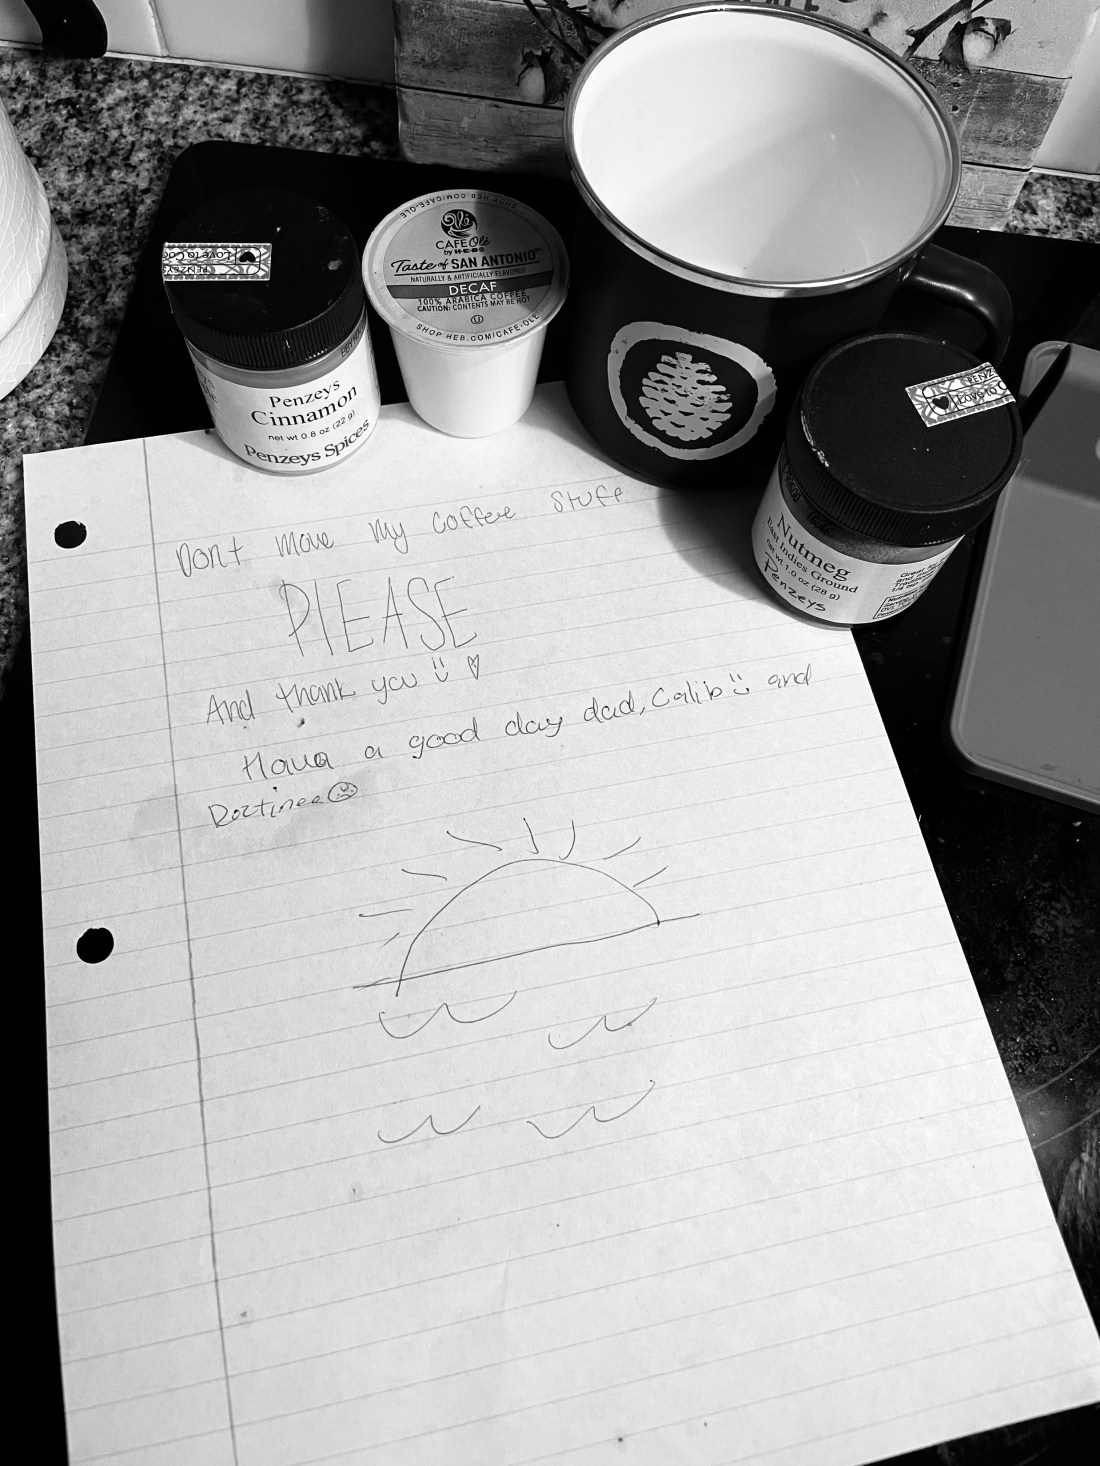 SHOP HEB.COM/CAFE-OLE
CAFÉ Olé
by H-E-B
Taste of SAN ANTONIO™
NATURALLY & ARTIFICIALLY FLAVORED
DECAF
100% ARABICA COFFEE
CAUTION: CONTENTS MAY BE HOT
SHOP HEB.COM/CAFE-OLE
Love to Coo
PENZEYS
Penzeys
Cinnamon
net wt 0.8 oz (22 g)
Penzeys Spices
PENZ
Love to C
Nutmeg
East Indies Ground
net wt 1.0 oz (28 g)
Penzeys
Dont move my coffee stuff
PlEASE
And thank you
Hava a good day dad, Calib and